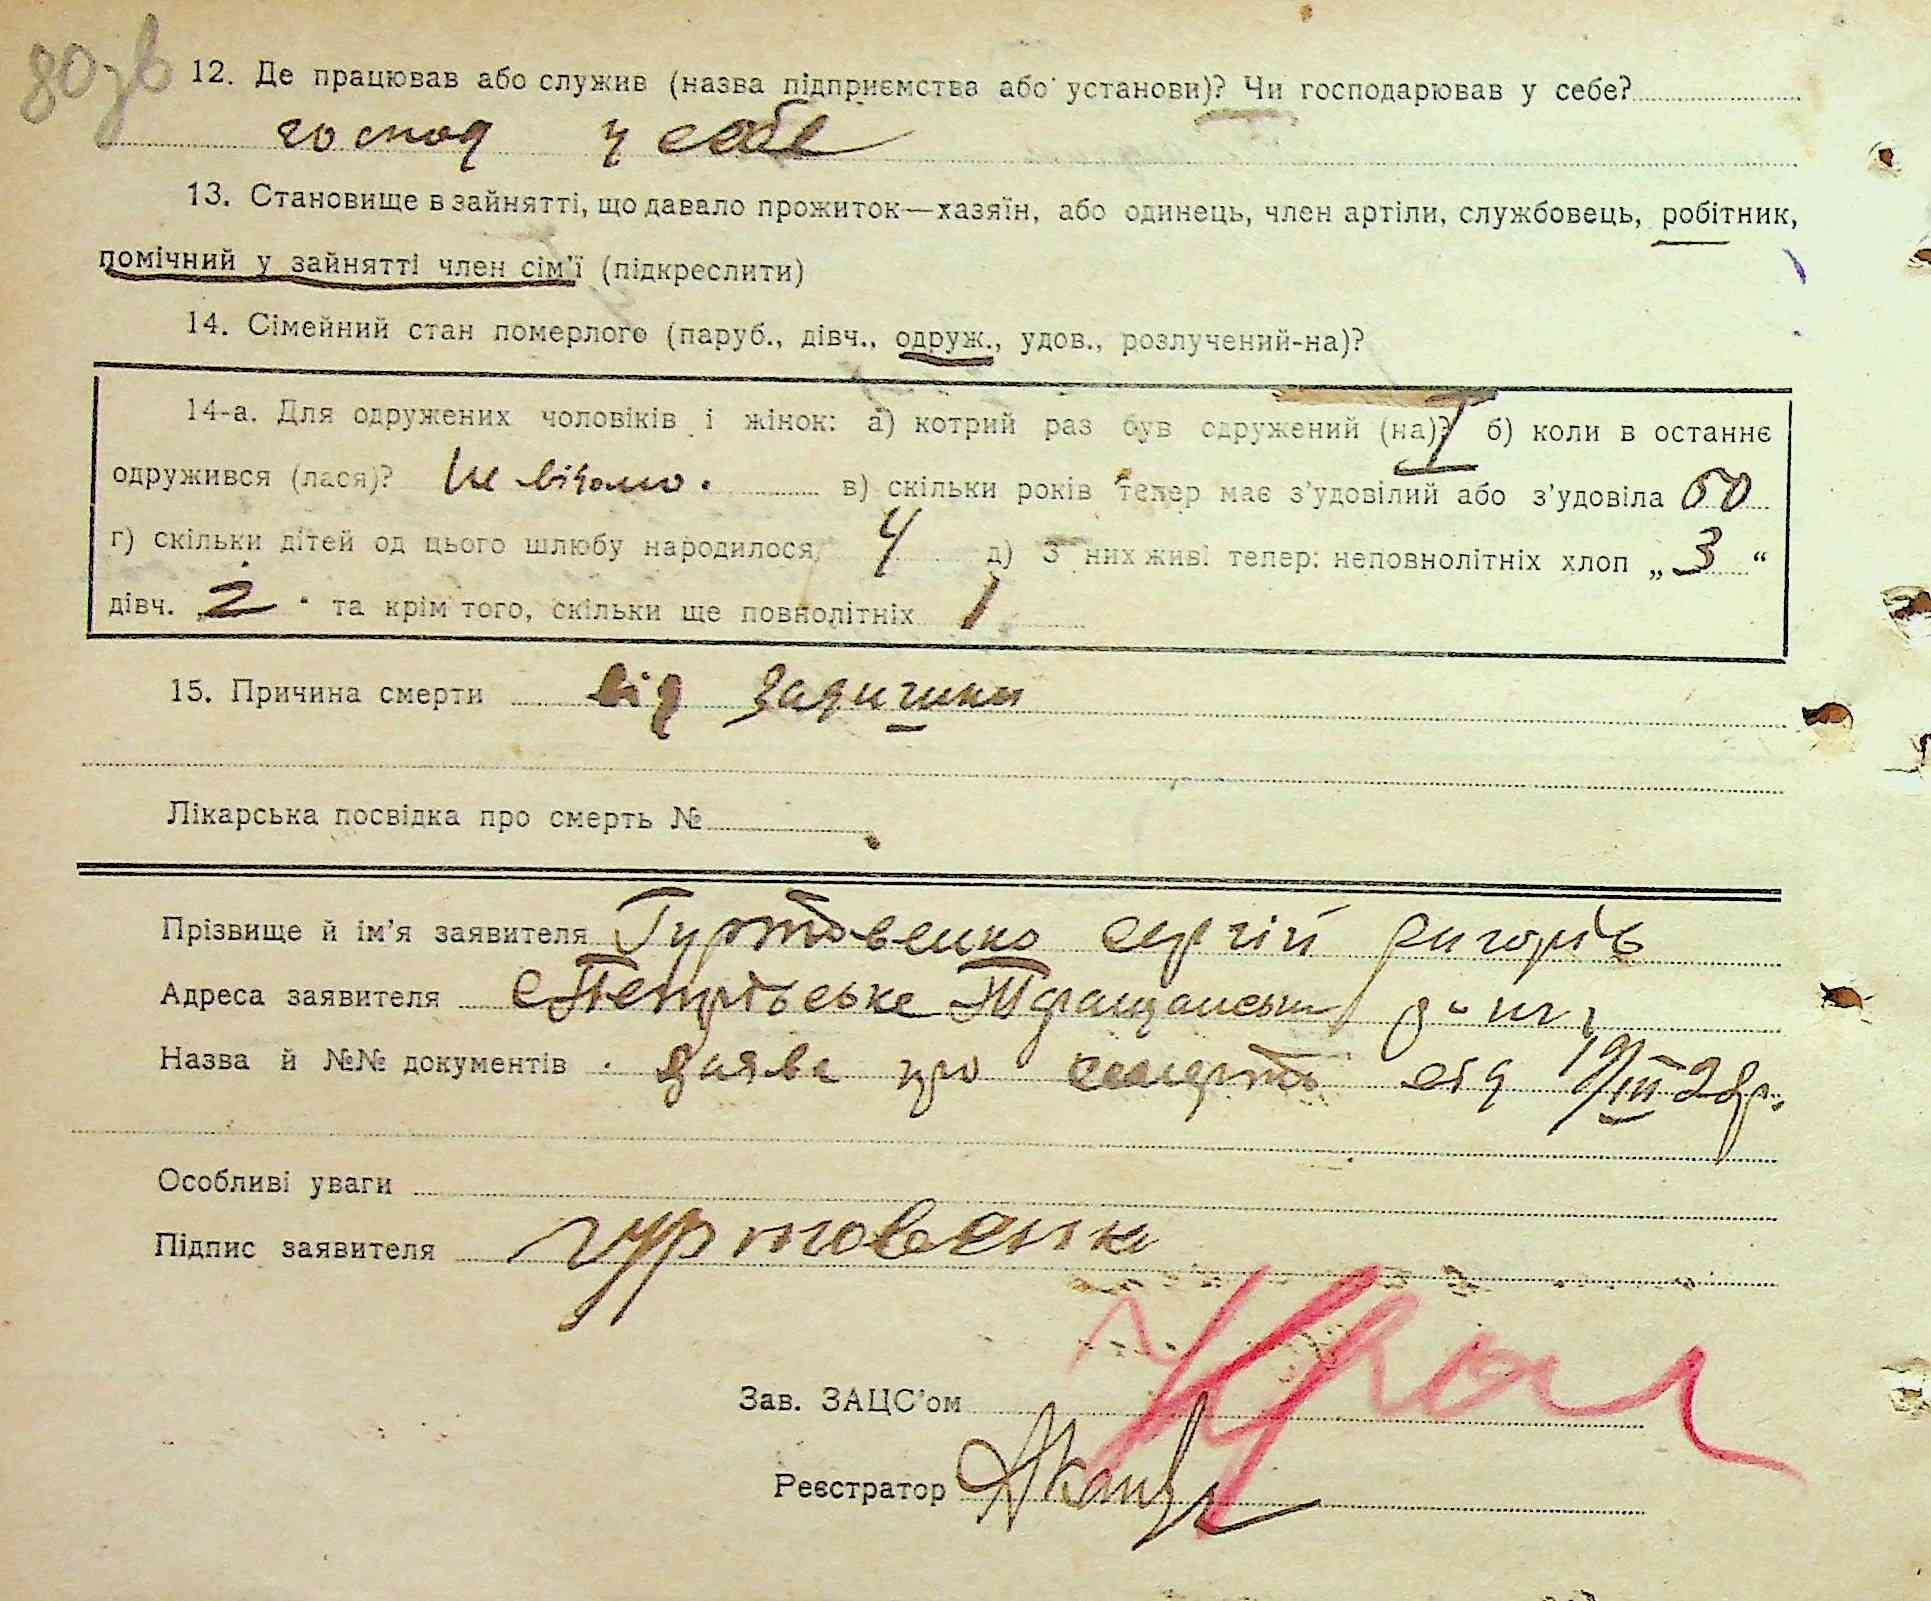 80зв
12. Де працював або служив (назва підприємства або установи)? Чи господарював у себе?
господ у себе
13. Становище в зайнятті, що давало прожиток—хазяїн, або одинець, член артіли, службовець, робітник,
помічний у зайнятті член сім'ї (підкреслити)
14. Сімейний стан померлого (паруб., дівч., одруж., удов., розлучений-на)?
14-а. Для одружених чоловіків і жінок: а) котрий раз був одружений (на)? I б) коли в останнє
одружився (лася)? Не відомо. в) скільки років тепер має з'удовілий або з'удовіла 60
г) скільки дітей од цього шлюбу народилося 4 д) З них живі тепер: неповнолітніх хлоп „3“
дівч. 2 " та крім того, скільки ще повнолітніх 1
15. Причина смерти від задишки
Лікарська посвідка про смерть №
Прізвище й ім'я заявителя Гуртовенко Сергій Григорів
Адреса заявителя с Петрівське
Назва й №№ документів заява про смерть від 19/III 28р.
Особливі уваги
Підпис заявителя Гуртовенко
Зав. ЗАЦС'ом
Реєстратор